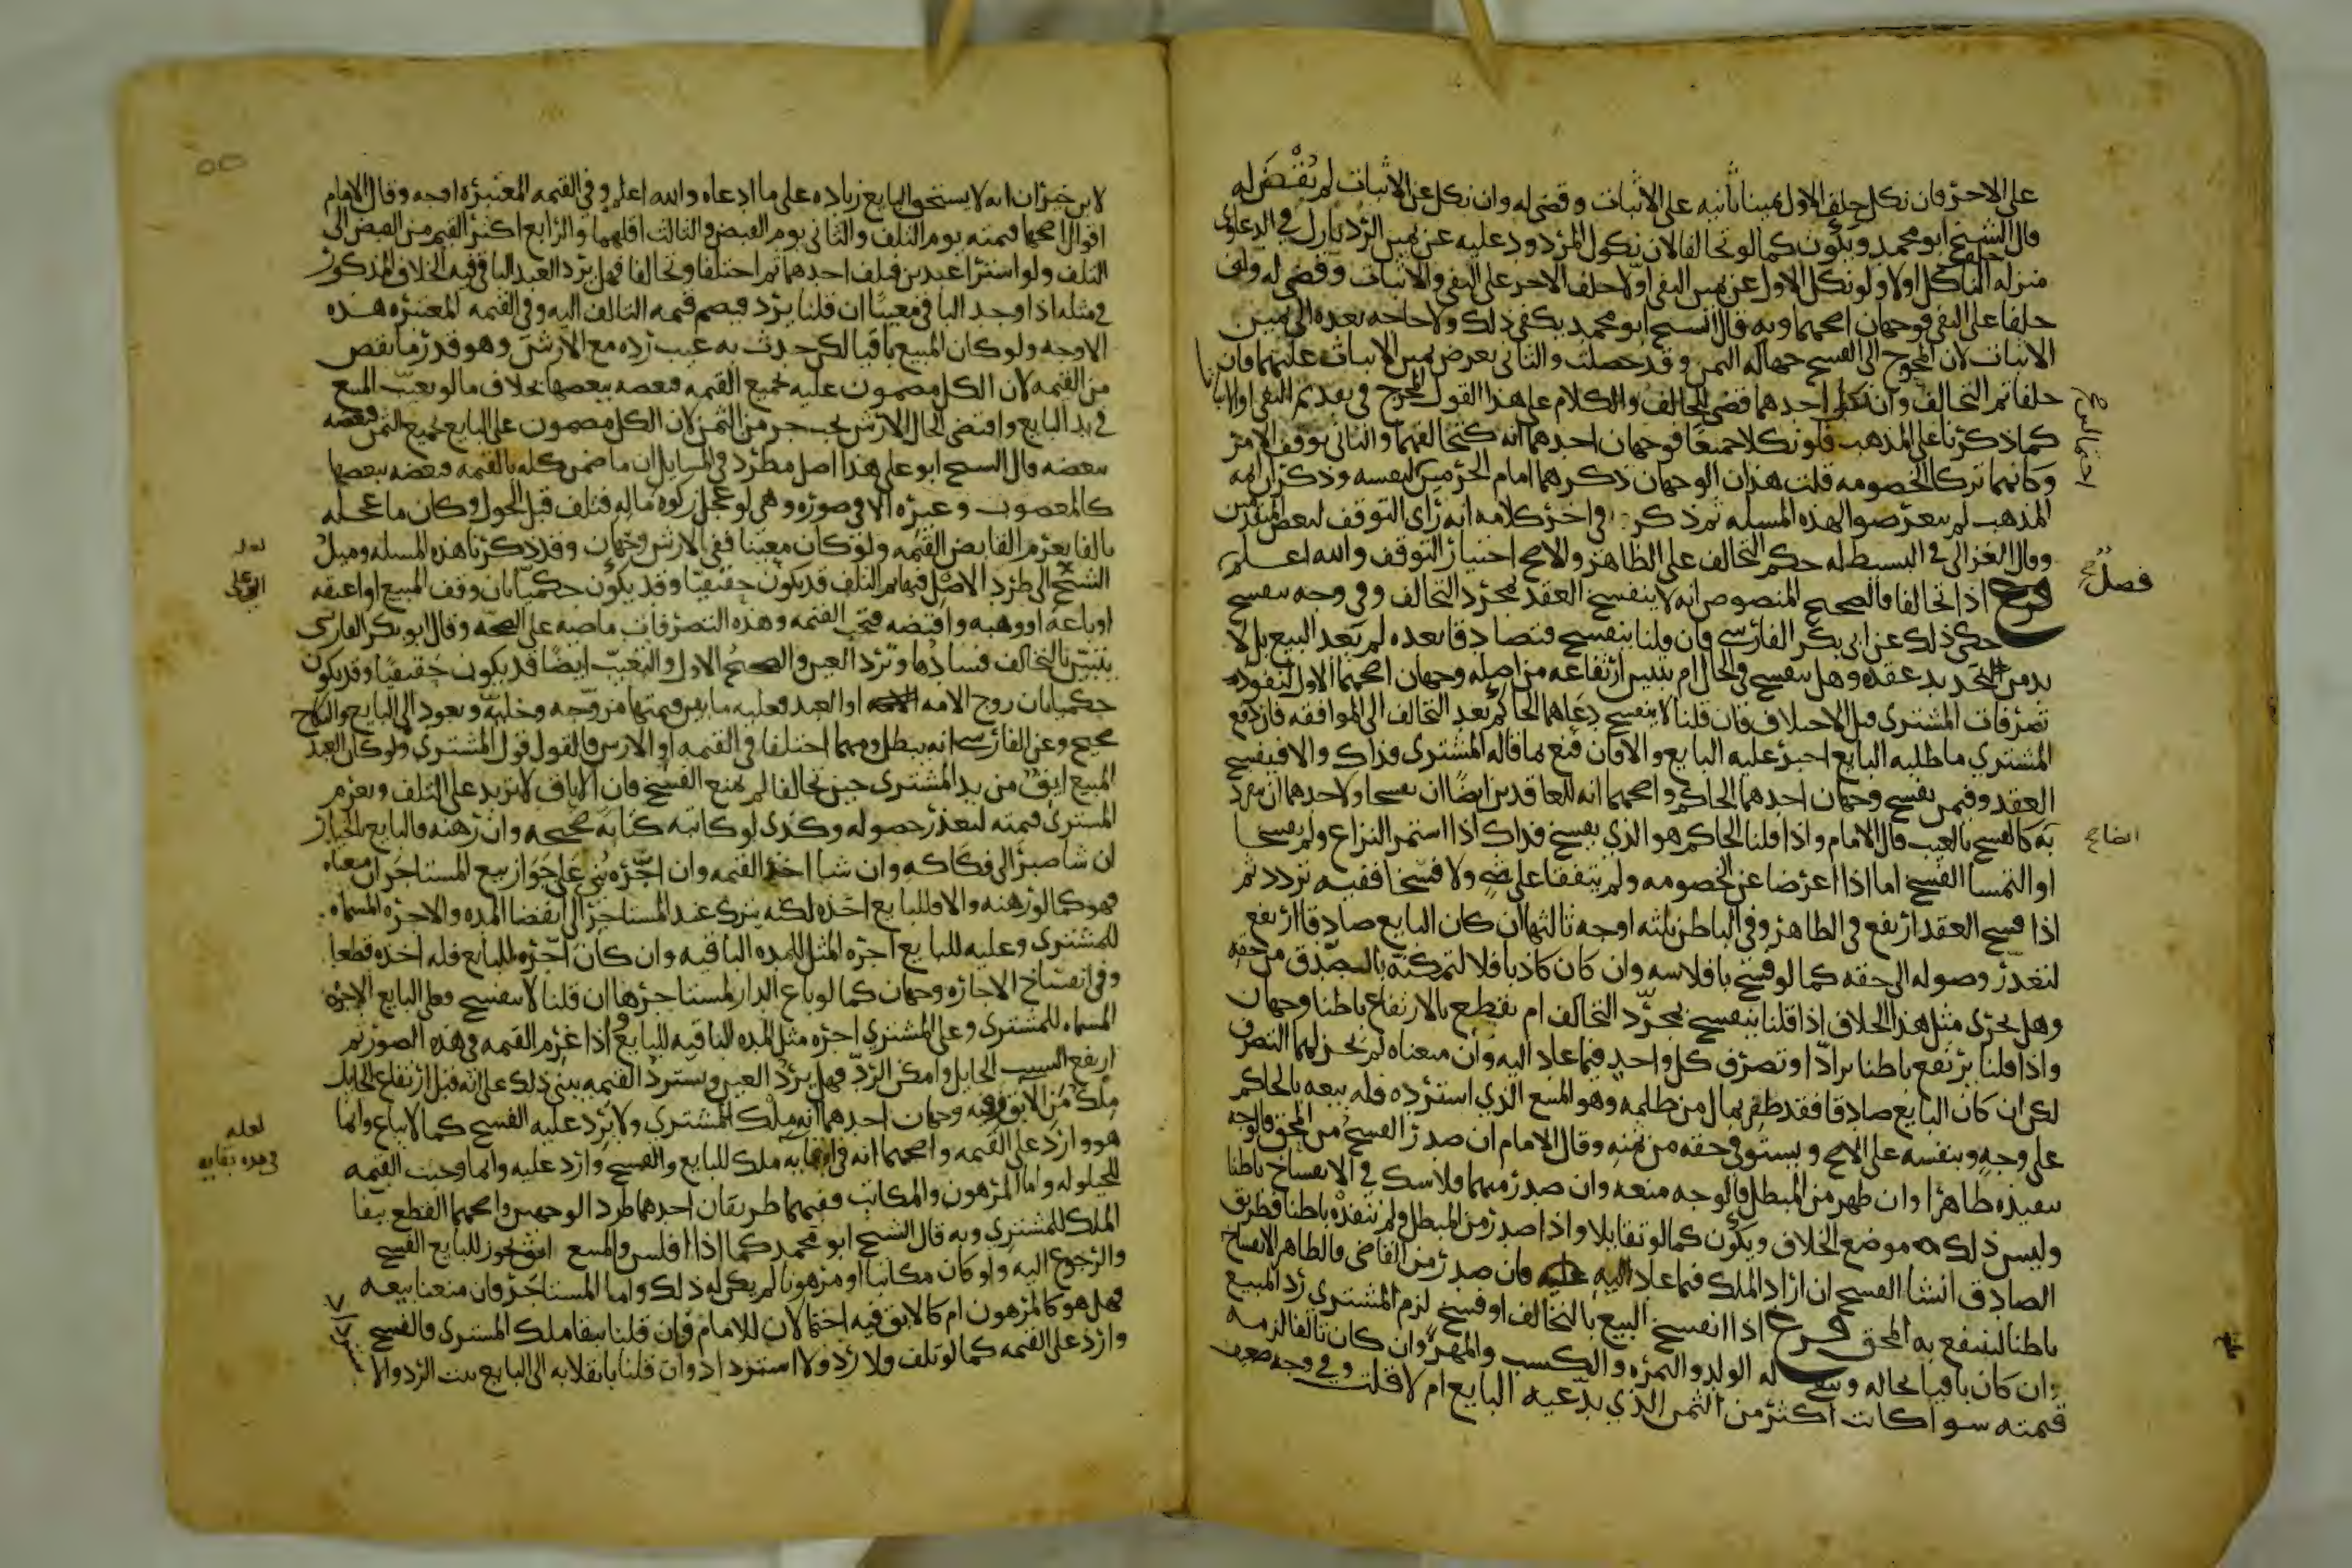 على الاخر فان نكل حلف الاول يمينا ثانيه على الاثبات وقضى له وان نكل عن الاثبات لم يقض له
قال الشيخ ابو محمد ويكون كما لو تحالفا لان نكول المردود عليه عن يمين الرد نازل في الدعاوى
منزله حلف الناكل اولا ولو نكل الاول عن يمين النفي اولا حلف الاخر على النفي والاثبات وقضى له ولو
حلفا على النفي فوجهان اصحهما وبه قال الشيخ ابو محمد يكفي ذلك ولا حاجه بعده الى يمين
الاثبات لان المحوج الى الفسخ جهاله الثمن وقد حصلت والثاني يعرض يمين الاثبات عليهما فان
حلفا تم التحالف وان نكل احدهما قضى للحالف والكلام على هذا القول المخرج في تقديم النفي او الاثبات
كما ذكرنا على المذهب فلو نكلا جميعا فوجهان احدهما انه كتحالفهما والثاني يوقف الامر
وكانهما تركا الخصومه قلت هذان الوجهان ذكرهما امام الحرمين لنفسه وذكر ان ايمه
المذهب لم يتعرضوا لهذه المسله ثم ذكر في اخر كلامه انه راى التوقف لبعض المتقدمين
وقال الغزالي في البسيط له حكم التحالف على الظاهر والاصح اختيار التوقف والله اعلم
فصل
فرع اذا تحالفا فالصحيح المنصوص انه لا ينفسخ العقد بمجرد التحالف وفي وجه ينفسخ
حكى ذلك عن ابي بكر الفارسي فان قلنا ينفسخ فتصادقا بعده لم يعد البيع بل لا
بد من تجديد عقد وهل ينفسخ في الحال ام يتبين ارتفاعه من اصله وجهان اصحهما الاول لنفوذ
تصرفات المشتري قبل الاختلاف فان قلنا لا ينفسخ دعاهما الحاكم بعد التحالف الى الموافقه فان دفع
المشتري ما طلبه البايع اجبر عليه البايع والا فان قنع بما قاله المشتري فذاك والا فيفسخ
العقد وفيمن يفسخ وجهان احدهما الحاكم واصحهما انه للعاقدين ايضا ان يفسخا ولاحدهما ان ينفرد
به كالفسخ بالعيب قال الامام واذا قلنا الحاكم هو الذي يفسخ فذاك اذا استمر النزاع ولم يفسخا
او التمسا الفسخ اما اذا اعرضا عن الخصومه ولم يتفقا على شي ولا فسخا ففيه تردد ثم
اذا فسخ العقد ارتفع في الظاهر وفي الباطن ثلثه اوجه ثالثها ان كان البايع صادقا ارتفع
لتعذر وصوله الى حقه كما لو فسخ بافلاسه وان كان كاذبا فلا لتمكنه بالصدق من حقه
وهل يجري مثل هذا الخلاف اذا قلنا ينفسخ بمجرد التحالف ام يقطع بالارتفاع باطنا وجهان
واذا قلنا يرتفع باطنا ترادا وتصرف كل واحد فيما عاد اليه وان منعناه لم يجز لهما التصرف
لكن ان كان البايع صادقا فقد ظفر بمال من ظلمه وهو المبيع الذي استرده فله بيعه بالحاكم
على وجه وبنفسه على الاصح ويستوفي حقه من ثمنه وقال الامام ان صدر الفسخ من المحق فالوجه
تنفيذه ظاهرا وان ظهر من المبطل فالوجه منعه وان صدر منهما فلا شك في الانفساخ باطنا
وليس ذلك موضع الخلاف ويكون كما لو تقايلا واذا صدر من المبطل ولم ننفذه باطنا فطريق
الصادق انشا الفسخ ان اراد الملك فيما عاد اليه وان صدر من القاضي فالظاهر الانفساخ
باطنا لينتفع به المحق فرع اذا انفسخ البيع بالتحالف او فسخ لزم المشتري رد المبيع
ان كان باقيا بحاله ويبقى له الولد والثمره والكسب والمهر وان كان تالفا لزمه
قيمته سوا كانت اكثر من الثمن الذي يدعيه البايع ام لا قلت وفي وجه ضعيف
لابن خيران انه لا يستحق البايع زياده على ما ادعاه والله اعلم وفي القيمه المعتبره اوجه وقال الامام
اقوال اصحها قيمته يوم التلف والثاني يوم القبض والثالث اقلهما والرابع اكثر القيم من القبض الى
التلف ولو اشترا عبدين فتلف احدهما ثم اختلفا وتحالفا فهل يرد العبد الباقي فيه الخلاف المذكور
في مثله اذا وجد الباقي معيبا ان قلنا يرد فيضم قيمه التالف اليه وفي القيمه المعتبره هذه
الاوجه ولو كان المبيع باقيا لكن حدث به عيب رده مع الارش وهو قدر ما نقص
من القيمه لان الكل مضمون عليه بجميع القيمه فبعضه ببعضها بخلاف ما لو تعيب المبيع
في يد البايع واقتضى الحال الارش يجب جز من الثمن لان الكل مضمون على البايع بجميع الثمن فبعضه
ببعضه قال الشيخ ابو علي هذا اصل مطرد في المسايل ان ما ضمن كله بالقيمه فبعضه ببعضها
كالمغصوب وغيره الا في صوره وهي لو عجل زكوه ماله فتلف قبل الحول وكان ما عجله
تالفا يغرم القابض القيمه ولو كان معيبا ففي الارش وجهان وقد ذكرنا هذه المسله وميل
الشيخ الى طرد الاصل فيها ثم التلف قد يكون حقيقيا وقد يكون حكميا بان وقف المبيع او اعتقه
او باعه او وهبه واقبضه فتجب القيمه وهذه التصرفات ماضيه على الصحه وقال ابو بكر الفارسي
يتبين بالتحالف فسادها وترد العين والصحيح الاول والتعيب ايضا قد يكون حقيقيا وقد يكون
حكميا بان زوج الامه او العبد فعليه ما بين قيمتها مزوجه وخليه ويعود الى البايع والنكاح
صحيح وعن الفارسي انه يبطل ومهما اختلفا في القيمه او الارش فالقول قول المشتري ولو كان العبد
المبيع ابق من يد المشتري حين تحالفا لم يمنع الفسخ فان الاباق لا يزيد على التلف ويغرم
المشتري قيمته لتعذر حصوله وكذى لو كاتبه كتابه صحيحه وان رهنه فالبايع بالخيار
ان شا صبر الى فكاكه وان شا اخذ القيمه وان اجره بني على جواز بيع المستاجر ان منعناه
فهو كما لو رهنه والا فللبايع اخذه لكنه يترك عند المستاجر الى انقضا المده والاجره المسماه
للمشتري وعليه للبايع اجره المثل للمده الباقيه وان كان اجره للبايع فله اخذه قطعا
وفي انفساخ الاجاره وجهان كما لو باع الدار لمستاجرها ان قلنا لا ينفسخ فعلى البايع الاجره
المسماه للمشتري وعلى المشتري اجره مثل المده الباقيه للبايع واذا غرم القيمه في هذه الصور ثم
ارتفع السبب الحايل وامكن الرد فهل يرد العين ويسترد القيمه يبنى ذلك على انه قبل ارتفاع الحايل
ملك من الابق فيه وجهان احدهما انه ملك المشتري ولا يرد عليه الفسخ كما لا يباع وانما
هو وارد على القيمه واصحهما انه في اباقه ملك للبايع والفسخ وارد عليه وانما وجبت القيمه
للحيلوله واما المرهون والمكاتب ففيهما طريقان احدهما طرد الوجهين واصحهما القطع ببقا
الملك للمشتري وبه قال الشيخ ابو محمد كما اذا افلس والمبيع ابق يجوز للبايع الفسخ
والرجوع اليه ولو كان مكاتبا او مرهونا لم يكن له ذلك واما المستاجر فان منعنا بيعه
فهل هو كالمرهون ام كالابق فيه احتمالان للامام فان قلنا ببقا ملك المشتري فالفسخ
وارد على القيمه كما لو تلف ولا رد ولا استرداد وان قلنا بانقلابه الى البايع ثبت الرد والا
لعله
ابو علي
لعله